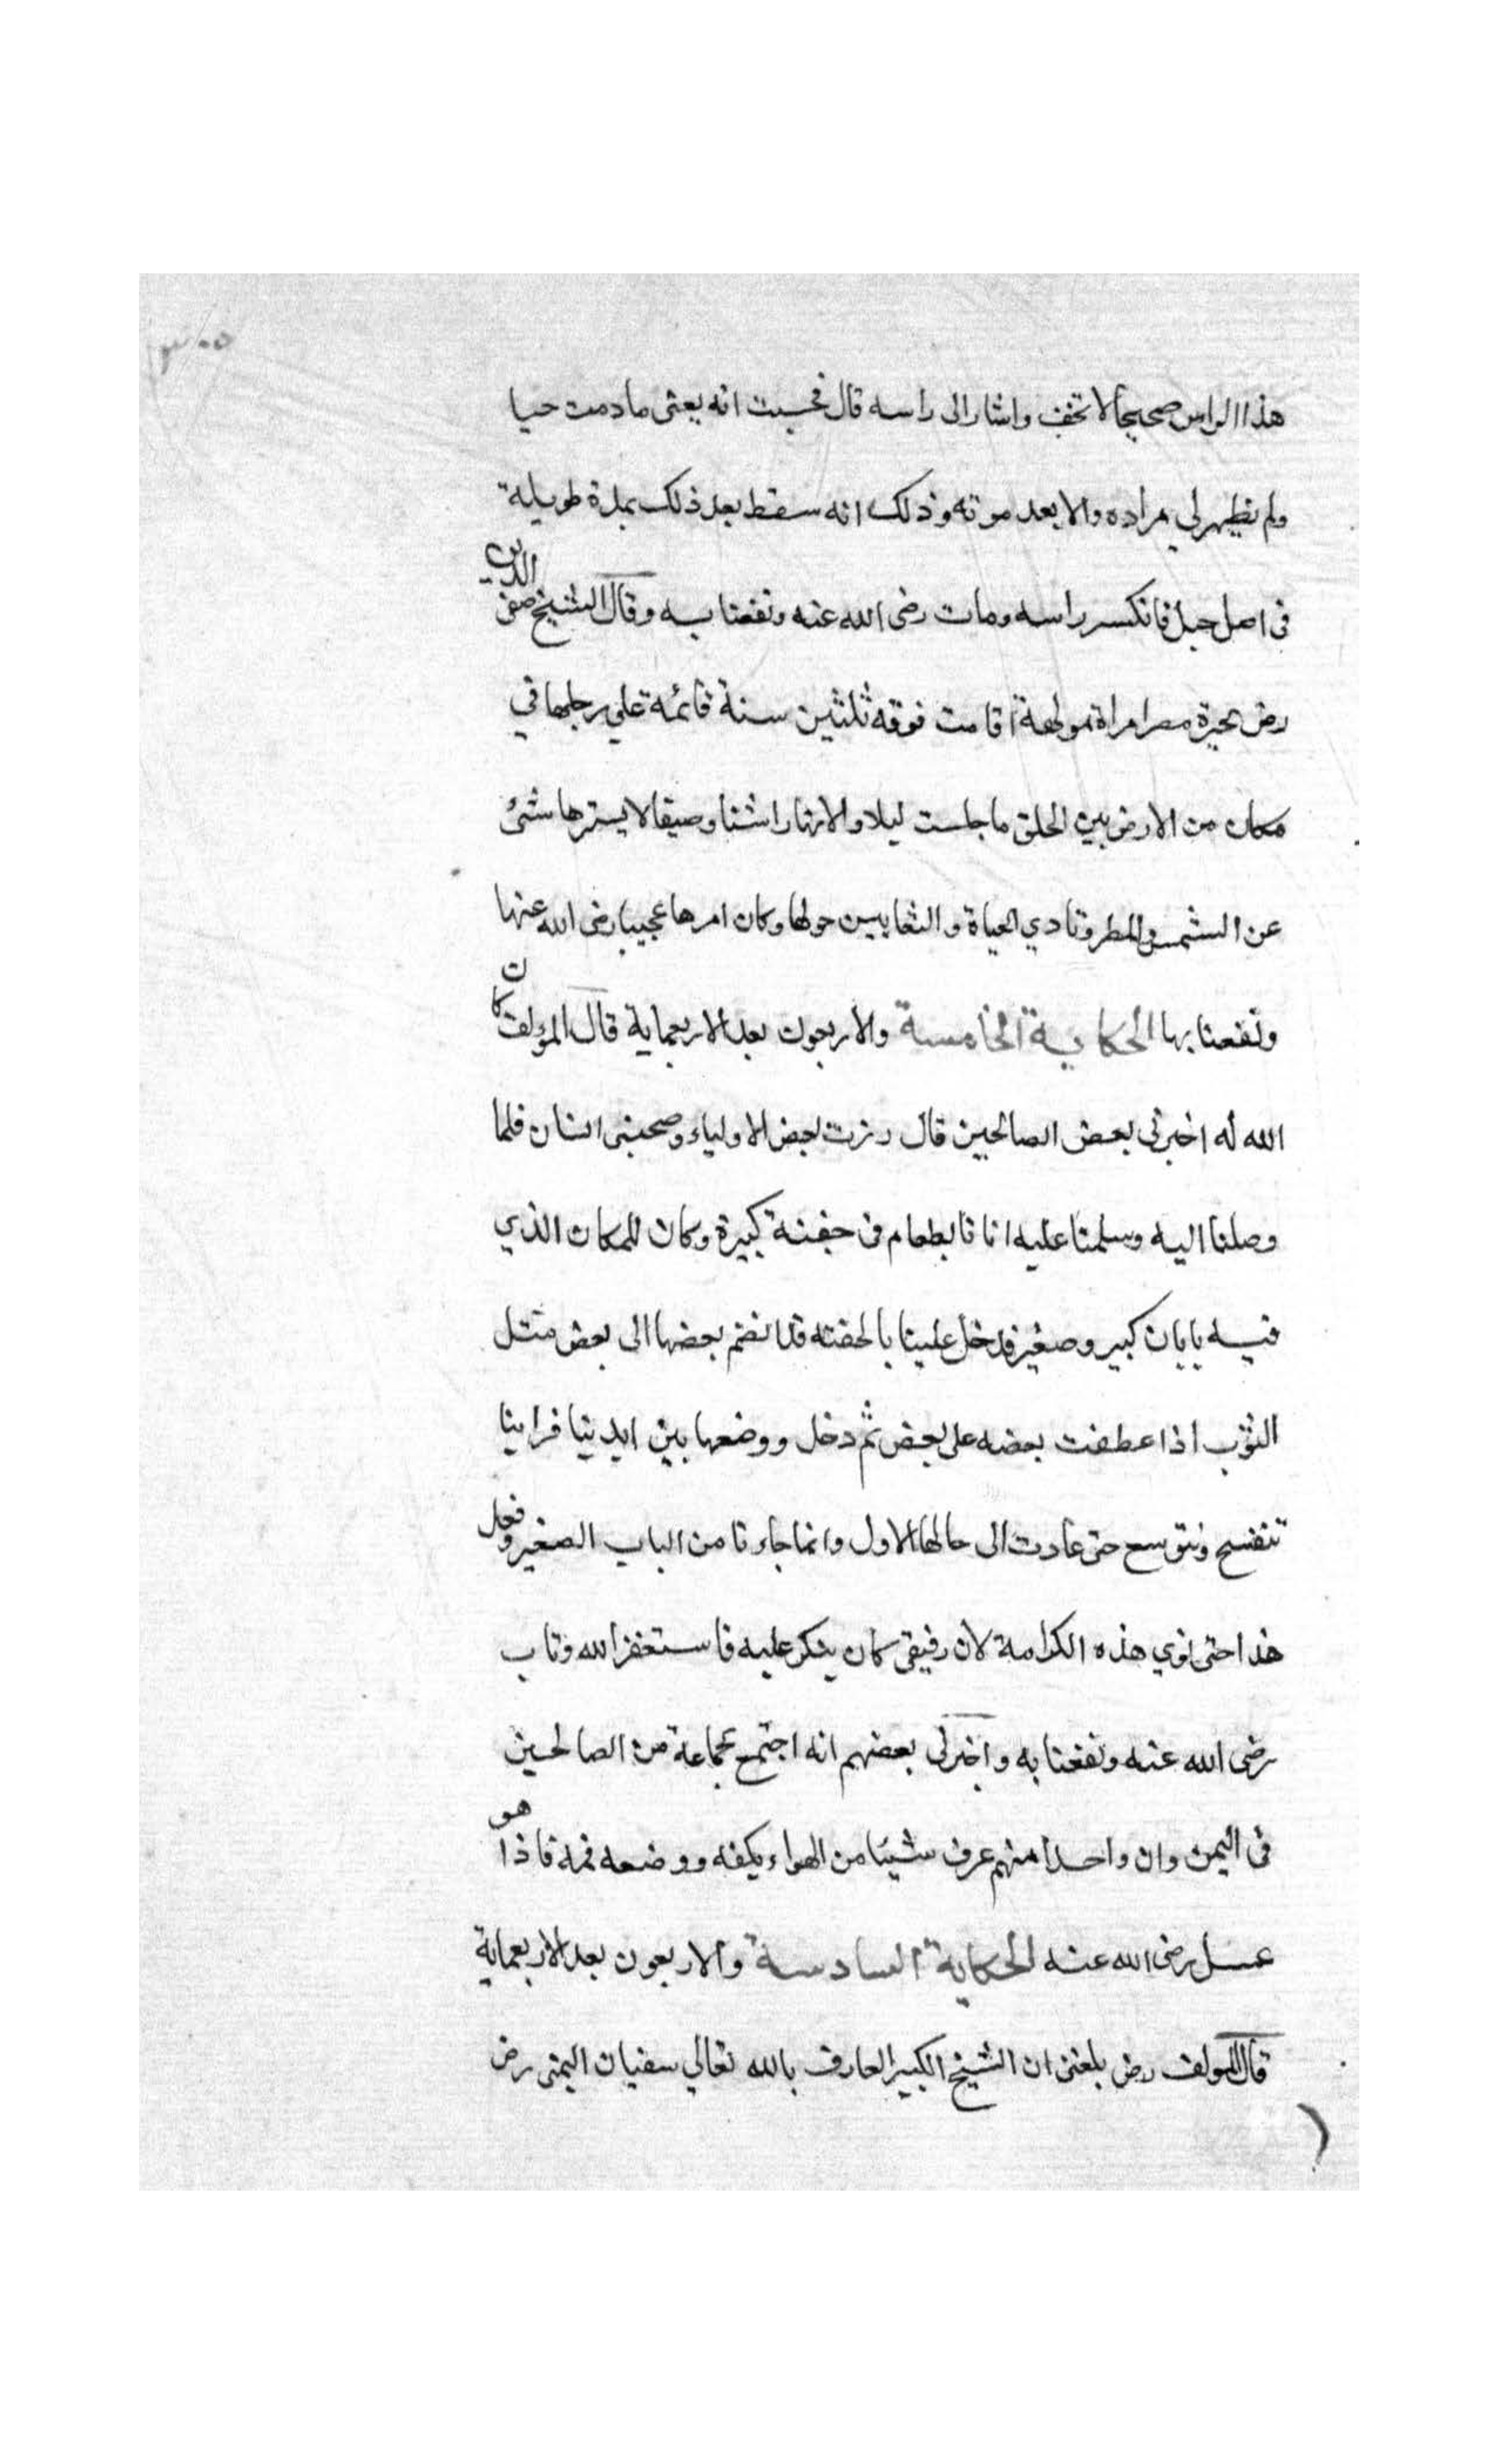 ٣٠٥
هذا الراس صحيحا لا تخف واشار الى راسه قال فحسبت انه يعنى ما دمت حيا
ولم يظهر لي مراده والا بعد موته وذلك انه سقط بعد ذلك بمدة طويلة
فى اصل جبل فانكسر راسه ومات رضى الله عنه ونفعنا به وقال الشيخ صفى الدين
رض بحيرة مصر امراة مولهة اقامت فوقه ثلثين سنة قائمة على رجلها في
مكان من الارض بين الحلق ما جلست ليلا والانهارا شتا وصيفا لا يسترها شئ
عن الشمس والمطر وتادي الحياة والثعابين حولها وكان امرها عجيبا رضى الله عنها
ونفعنا بها الحكاية الخامسة والاربعون بعد الاربعماية قال المؤلف كان
الله له اخبرنى بعض الصالحين قال زرت بعض الاولياء وصحبنى انسان فلما
وصلنا اليه وسلمنا عليه اتانا بطعام فى جفنة كبيرة وكان للمكان الذي
فيه بابان كبير وصغير فدخل علينا بالجفنه قد انضم بعضها الى بعض مثل
الثوب اذا عطفت بعضه على بعض ثم دخل ووضعها بين ايدينا فراينا
تنفسح وتتوسع حتى عادت الى حالها الاول وانما جاءنا من الباب الصغير وفعل
هذا حتى نوي هذه الكرامة لان رفيقى كان ينكر عليه فاستغفر الله وتاب
رضى الله عنه ونفعنا به واخبرنى بعضهم انه اجتمع بجماعة من الصالحين
فى اليمن وان واحدا منهم عرف شيئا من الهواء بكفه ووضعه فمه فاذا هو
عسل رضى الله عنه الحكاية السادسة والاربعون بعد الاربعماية
قال المولف رض بلغنى ان الشيخ الكبير العارف بالله تعالي سفيان اليمنى رض